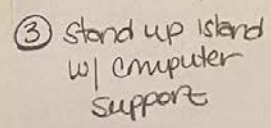 ③ Stand up island
w/ computer
support